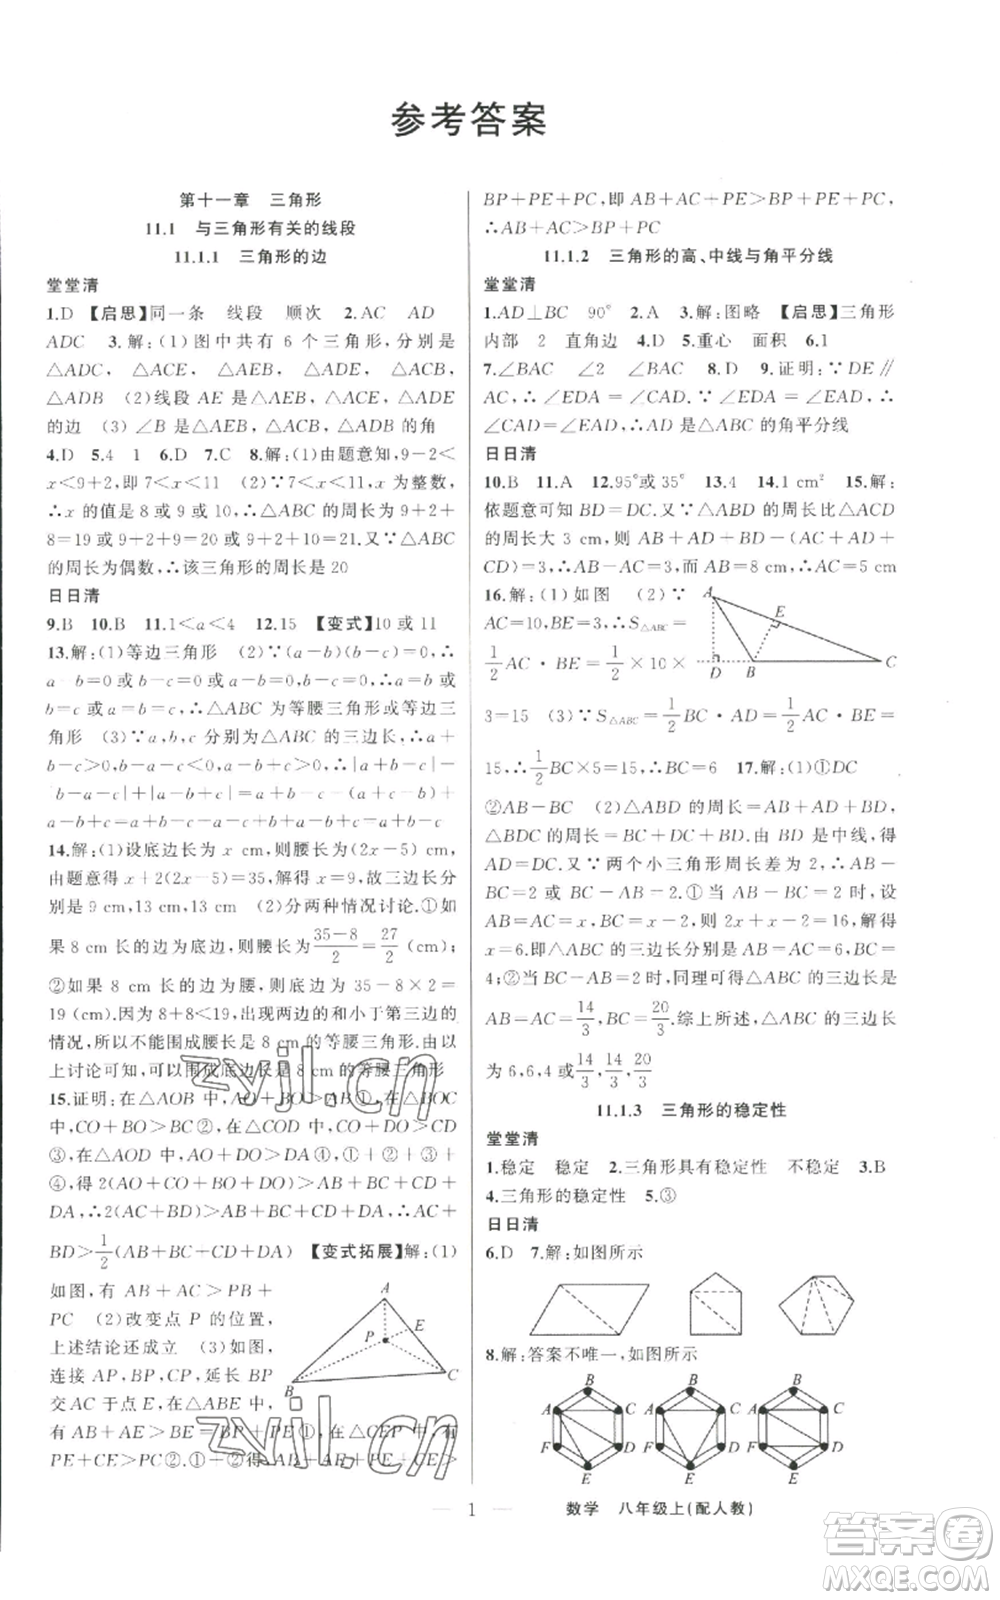 参考答案
第十一章 三角形
11.1 与三角形有关的线段
11.1.1 三角形的边
堂堂清
1.D 【启思】同一条 线段 顺次 2.AC AD
ADC 3.解:(1)图中共有 6 个三角形,分别是
△ADC, △ACE, △AEB, △ADE, △ACB,
△ADB (2)线段 AE 是△AEB,△ACE,△ADE
的边 (3) ∠B 是△AEB,△ACB,△ADB 的角
4.D 5.4 1 6.D 7.C 8.解:(1)由题意知,9-2<
x<9+2,即7<x<11 (2)∵7<x<11,x 为整数,
∴x 的值是 8 或 9 或 10.∴△ABC 的周长为 9+2+
8=19 或 9+2+9=20 或 9+2+10=21.又∵△ABC
的周长为偶数,∴该三角形的周长是 20
日日清
9.B 10.B 11.1<a<4 12.15 【变式】10 或 11
13.解:(1)等边三角形 (2)∵(a-b)(b-c)=0,∴
a-b=0 或 b-c=0 或 a-b=b-c=0.∴a=b 或
b=c 或 a=b=c.∴△ABC 为等腰三角形或等边三
角形 (3)∵a,b,c 分别为△ABC 的三边长,∴a+
b-c>0,b-c-a<0,a-b+c>0.∴|a+b-c|+
|b-c-a|+|a-b+c|=a+b-c-b+c+a+
a-b+c=3a-b+c
14.解:(1)设底边长为 x cm,则腰长为(2x-5) cm,
由题意得 x+2(2x-5)=35,解得 x=9,故三边长分
别是 9 cm,13 cm,13 cm (2)分两种情况讨论.①如
果 8 cm 长的边为底边,则腰长为 35-8/2=27/2(cm);
②如果 8 cm 长的边为腰,则底边长为 35-8×2=
19 (cm).因为 8+8<19,出现两边的和小于第三边的
情况,所以不能围成腰长是 8 cm 的等腰三角形.由以
上讨论可知,可以围成底边长是 8 cm 的等腰三角形
15.证明:在△AOB 中,AO+BO>AB①,在△BOC
中,CO+BO>BC②,在△COD 中,CO+DO>CD
③,在△AOD 中,AO+DO>DA④,①+②+③+
④,得 2(AO+BO+CO+DO)>AB+BC+CD+
DA,∴2(AC+BD)>AB+BC+CD+DA,∴AC+
BD>1/2(AB+BC+CD+DA) 【变式拓展】解:(1)
如图,有 AB+AC>PB+
PC (2)改变点 P 的位置,
上述结论还成立 (3)如图,
连接 AP,BP,CP,延长 BP
交 AC 于点 E,在△ABE 中,
有 AB+AE>BE=BP+PE①,在△CEP 中,有
PE+CE>PC②.①+②得 AB+AE+PE+CE>
A
E
P
B
C
BP+PE+PC,即 AB+AC+PE>BP+PE+PC,
∴AB+AC>BP+PC
11.1.2 三角形的高、中线与角平分线
堂堂清
1.AD⊥BC 90° 2.A 3.解:图略 【启思】三角形
内部 2 直角边 4.D 5.重心 面积 6.1
7.∠BAC ∠2 ∠BAC 8.D 9.证明:∵DE∥
AC,∴∠EDA=∠CAD.∵∠EDA=∠EAD,∴
∠CAD=∠EAD.∴AD 是△ABC 的角平分线
日日清
10.B 11.A 12.95°或 35° 13.4 14.1 cm² 15.解:
依题意可知 BD=DC.又∵△ABD 的周长比△ACD
的周长大 3 cm,则 AB+AD+BD-(AC+AD+
CD)=3,∴AB-AC=3,而 AB=8 cm,∴AC=5 cm
16.解:(1)如图 (2)∵
AC=10,BE=3,∴S△ABC=
1/2 AC·BE=1/2×10×
3=15 (3)∵S△ABC=1/2 BC·AD=1/2 AC·BE=
15,∴1/2 BC×5=15,∴BC=6 17.解:(1)①DC
A
E
D
B
C
②AB-BC (2)△ABD 的周长=AB+AD+BD,
△BDC 的周长=BC+CD+BD.由 BD 是中线,得
AD=DC.又∵两个小三角形周长差为 2,∴AB-
BC=2 或 BC-AB=2.①当 AB-BC=2 时,设
AB=AC=x,BC=x-2,则 2x+x-2=16,解得
x=6.即△ABC 的三边长分别是 AB=AC=6,BC=
4;②当 BC-AB=2 时,同理可得△ABC 的三边长是
AB=AC=14/3,BC=20/3.综上所述,△ABC 的三边长
为 6,6,4 或 14/3,14/3,20/3
11.1.3 三角形的稳定性
堂堂清
1.稳定 稳定 2.三角形具有稳定性 不稳定 3.B
4.三角形的稳定性 5.③
日日清
6.D 7.解:如图所示
8.解:答案不唯一,如图所示
B B B
A C A C A C
F D F D F D
E E E
1 数学 八年级上(配人教)
zyjl.cn
zyjl.cn
答案圈
MXQE.COM